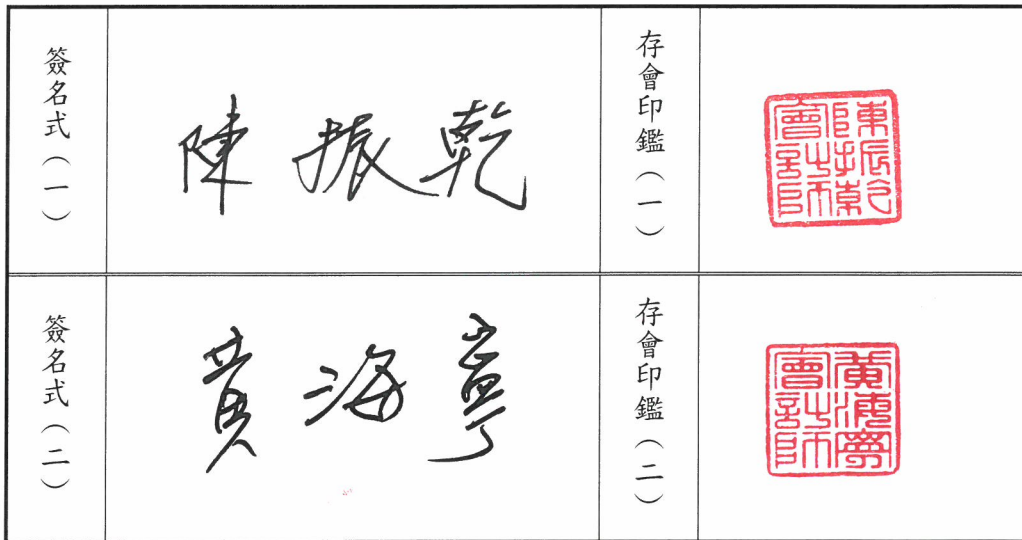 簽名式（一）
陳振乾
存會印鑑（一）
陳振乾會計師
簽名式（二）
黃海寧
存會印鑑（二）
黃海寧會計師